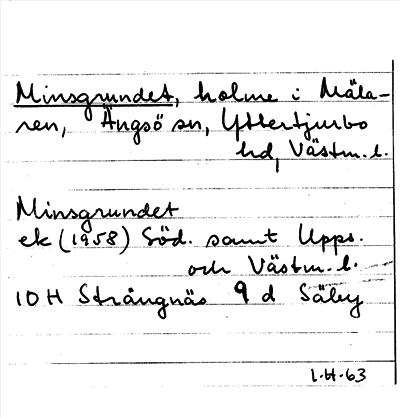 Minsgrundet, holme i Mäla-
ren, Ängsö sn, Yttertjurbo
hd, Västm. l.
Minsgrundet
ek (1958) Söd. samt Upps.
och Västm. l.
10 H Strängnäs 9 d Säby
1.H.63